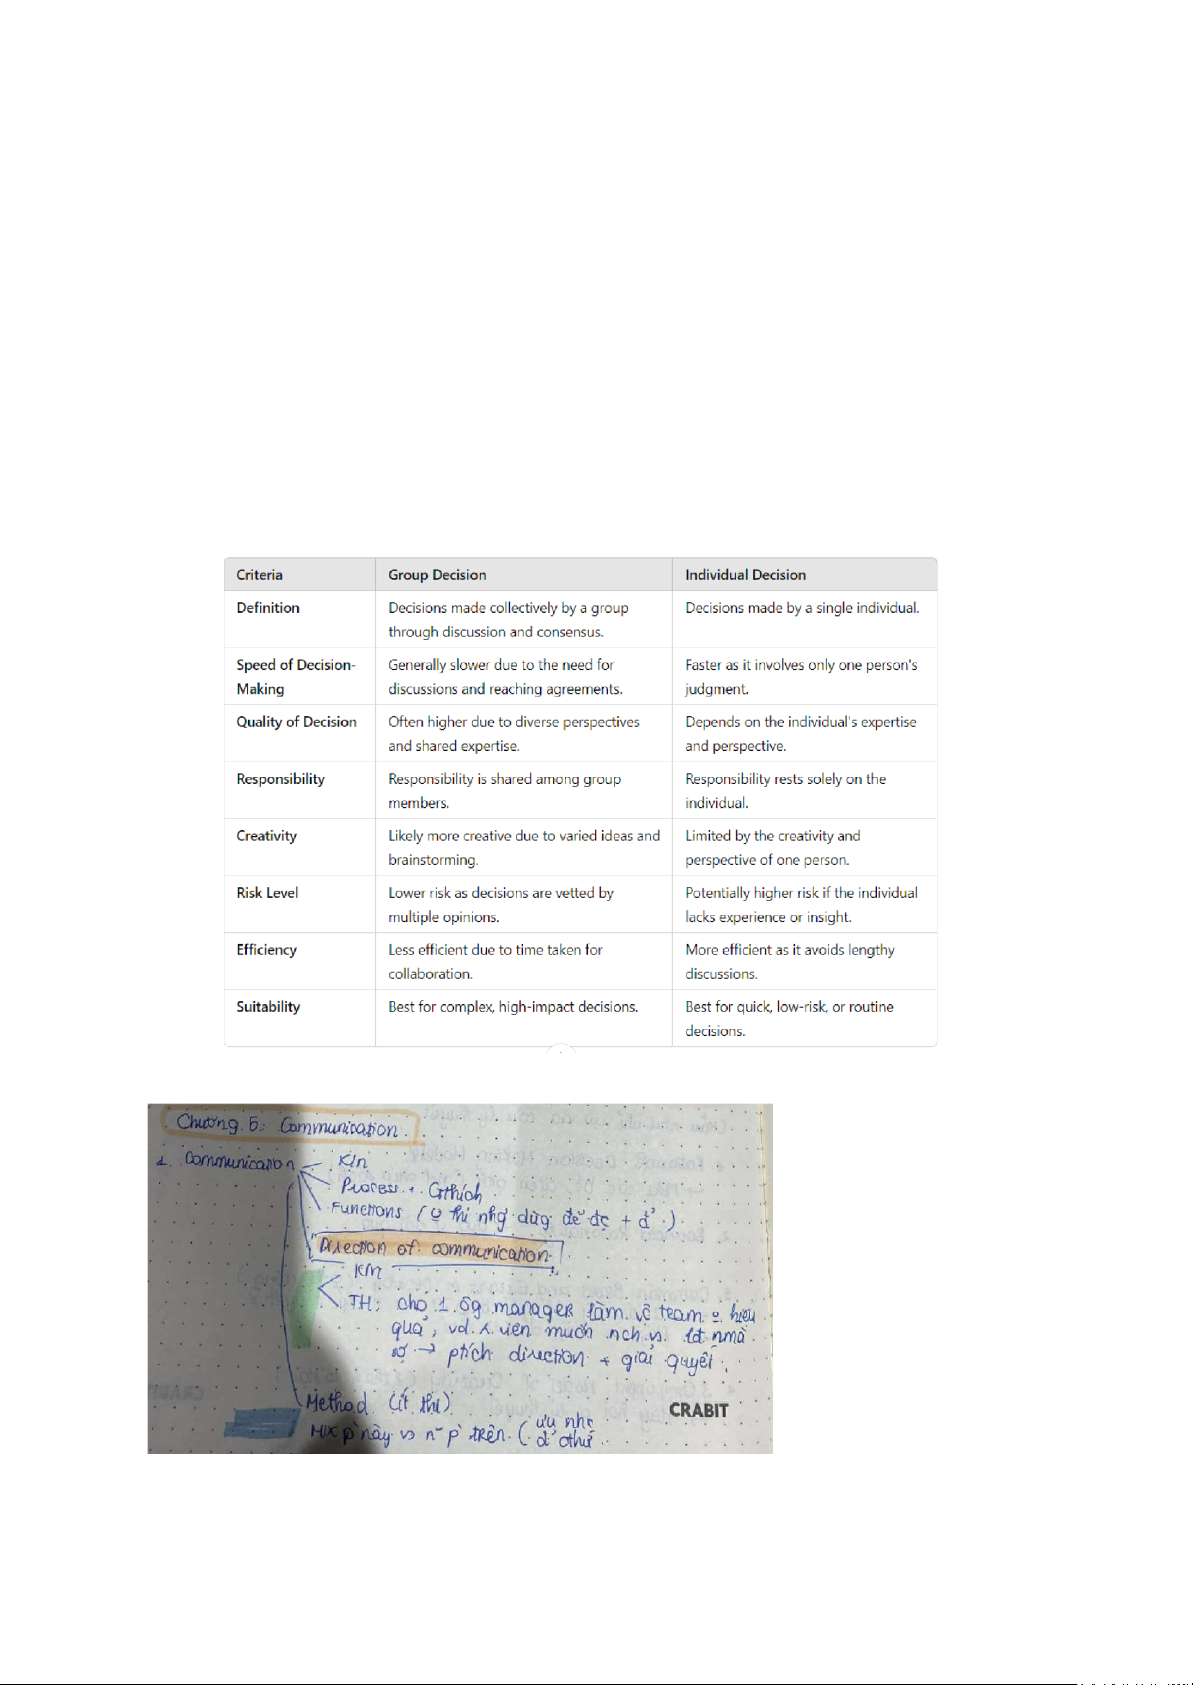 Criteria Group Decision Individual Decision
Definition Decisions made collectively by a group Decisions made by a single individual.
through discussion and consensus.
Speed of Decision- Generally slower due to the need for Faster as it involves only one person's
Making discussions and reaching agreements. judgment.
Quality of Decision Often higher due to diverse perspectives Depends on the individual's expertise
and shared expertise. and perspective.
Responsibility Responsibility is shared among group Responsibility rests solely on the
members. individual.
Creativity Likely more creative due to varied ideas and Limited by the creativity and
brainstorming. perspective of one person.
Risk Level Lower risk as decisions are vetted by Potentially higher risk if the individual
multiple opinions. lacks experience or insight.
Efficiency Less efficient due to time taken for More efficient as it avoids lengthy
collaboration. discussions.
Suitability Best for complex, high-impact decisions. Best for quick, low-risk, or routine
decisions.
Chương 5: Communication
1. Communication K/n
Process + Gthích
Functions ( thi nhg dùg để đc + )
Direction of communication
K/n
TH: cho 1 ôg manager làm vc team hiệu
quả, vd n.viên muốn nch vs lđ nma
sợ → ptích direction + giải quyết.
Method (ít thi)
Mix p này vs p trên (ưu nhc
CRABIT